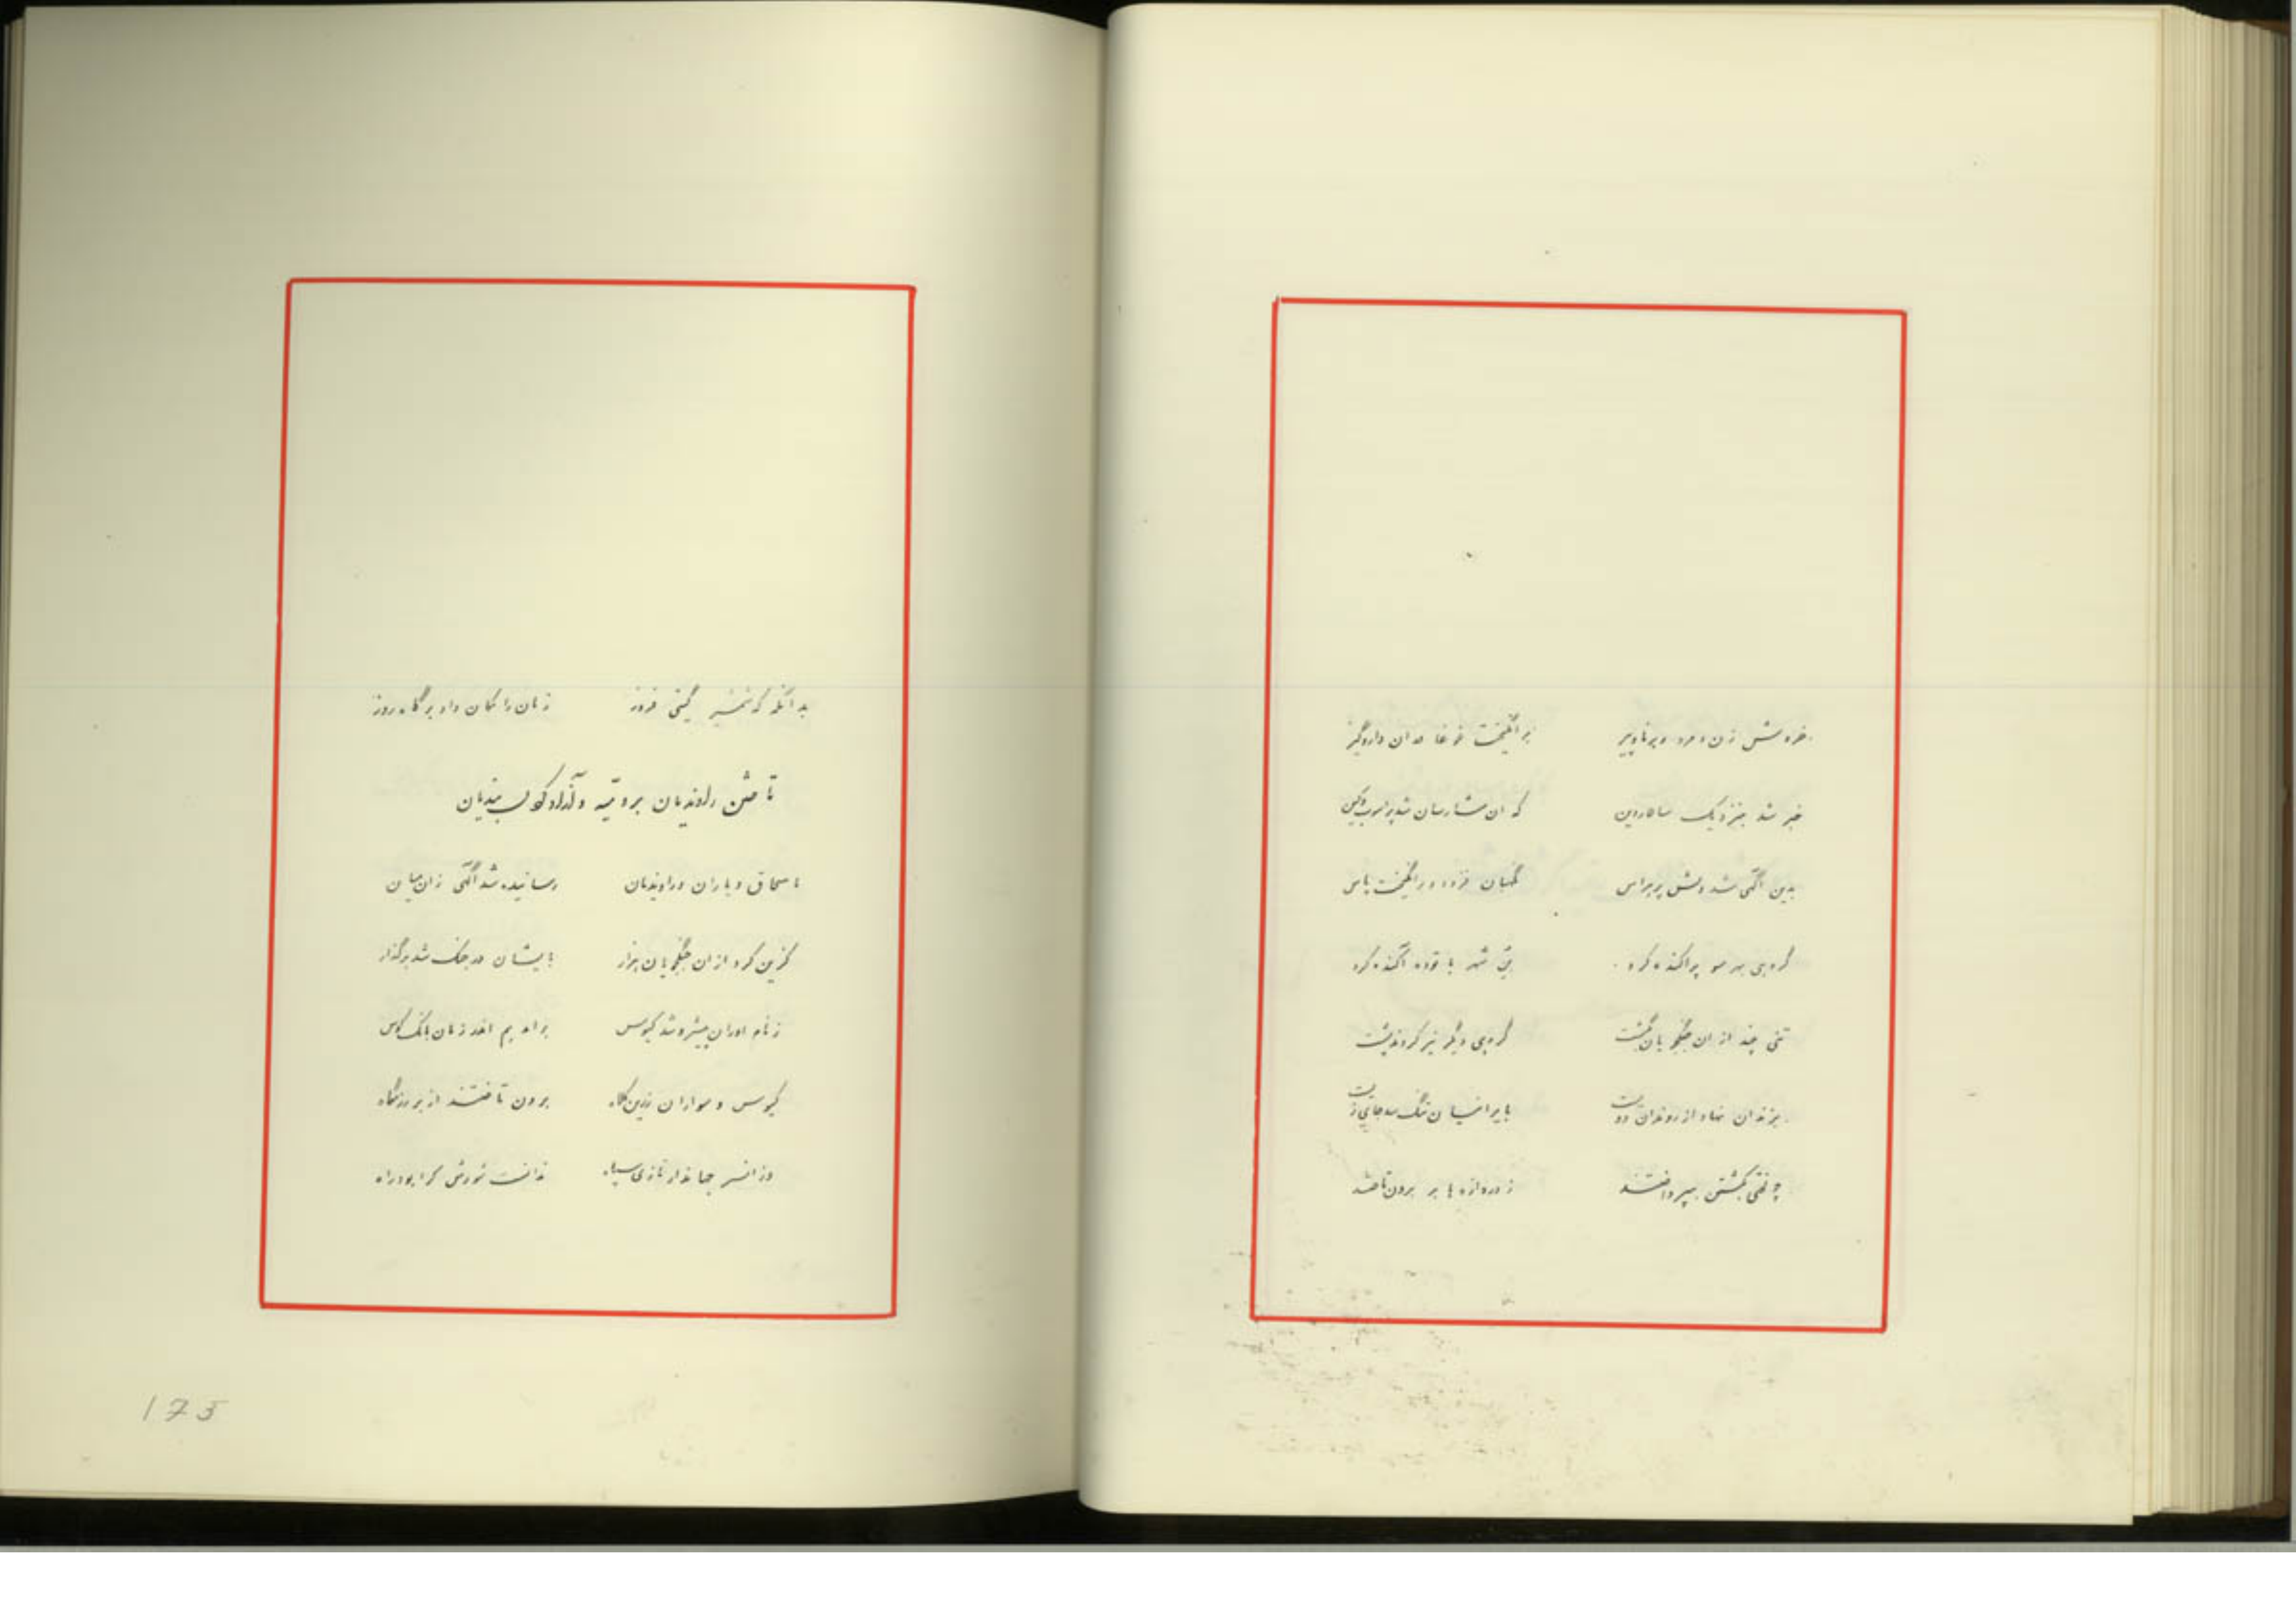 خروش زن و مرد و برنا و پیر برانگیخت غوغا در آن دار و گیر
خبر شد بنزدیک سالار دین که آن شارسان شد پر آشوب و کین
بدین آگهی شد دلش پر هراس نگهبان فزود و برانگیخت پاس
گروهی بهر سو پراکنده کرد شهر با توده آکنده کرد
تنی چند از آن جنگجویان بکشت گروهی دگر نیز کردند پشت
بزندان نهاد از روندان دویست بایرانیان تنگ شد جای زیست
چو لختی بکشتن بپرداختند ز دروازه‌ها بر برون تاختند
بدانگه که شمشیر گیتی فروز زمان را کمان داد بر گاه روز
تاختن راوندیان بر و آزاد کردن بندیان
باسحاق و یاران و راوندیان رسانیده شد آگهی زان میان
گزین کرد از آن جنگجویان هزار بایشان در جنگ شد برگذار
ز نام‌آوران پیشرو شد کیوس برآمد بهم اندر زمان بانگ کوس
کیوس و سواران زرین کلاه برون تاختند از بر رزمگاه
وز آنسر جهاندار تازی سپاه ندانست شورش کرا بود راه
175